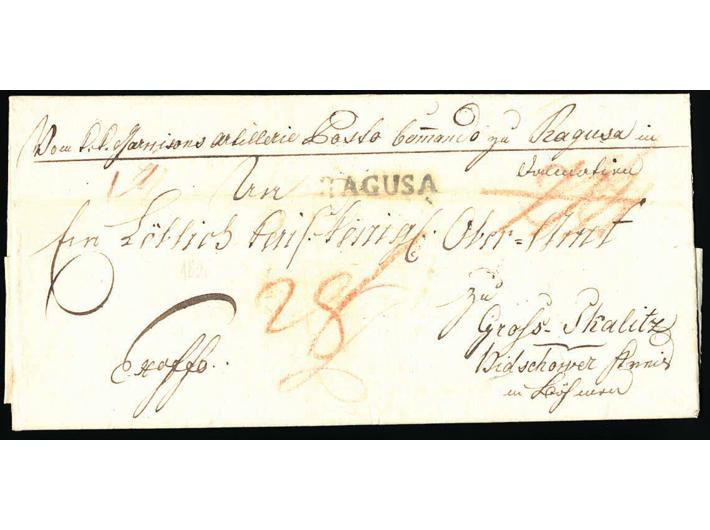 Vom k.k. Garnisons Artillerie Posto Commando zu Ragusa in
Dalmatien
An
RAGUSA
Ein Löblich Kais. Königl. Ober=Amt
28
zu
Gross-Skalitz
Exoffo.
Bidschower Kreis
in Böhmen